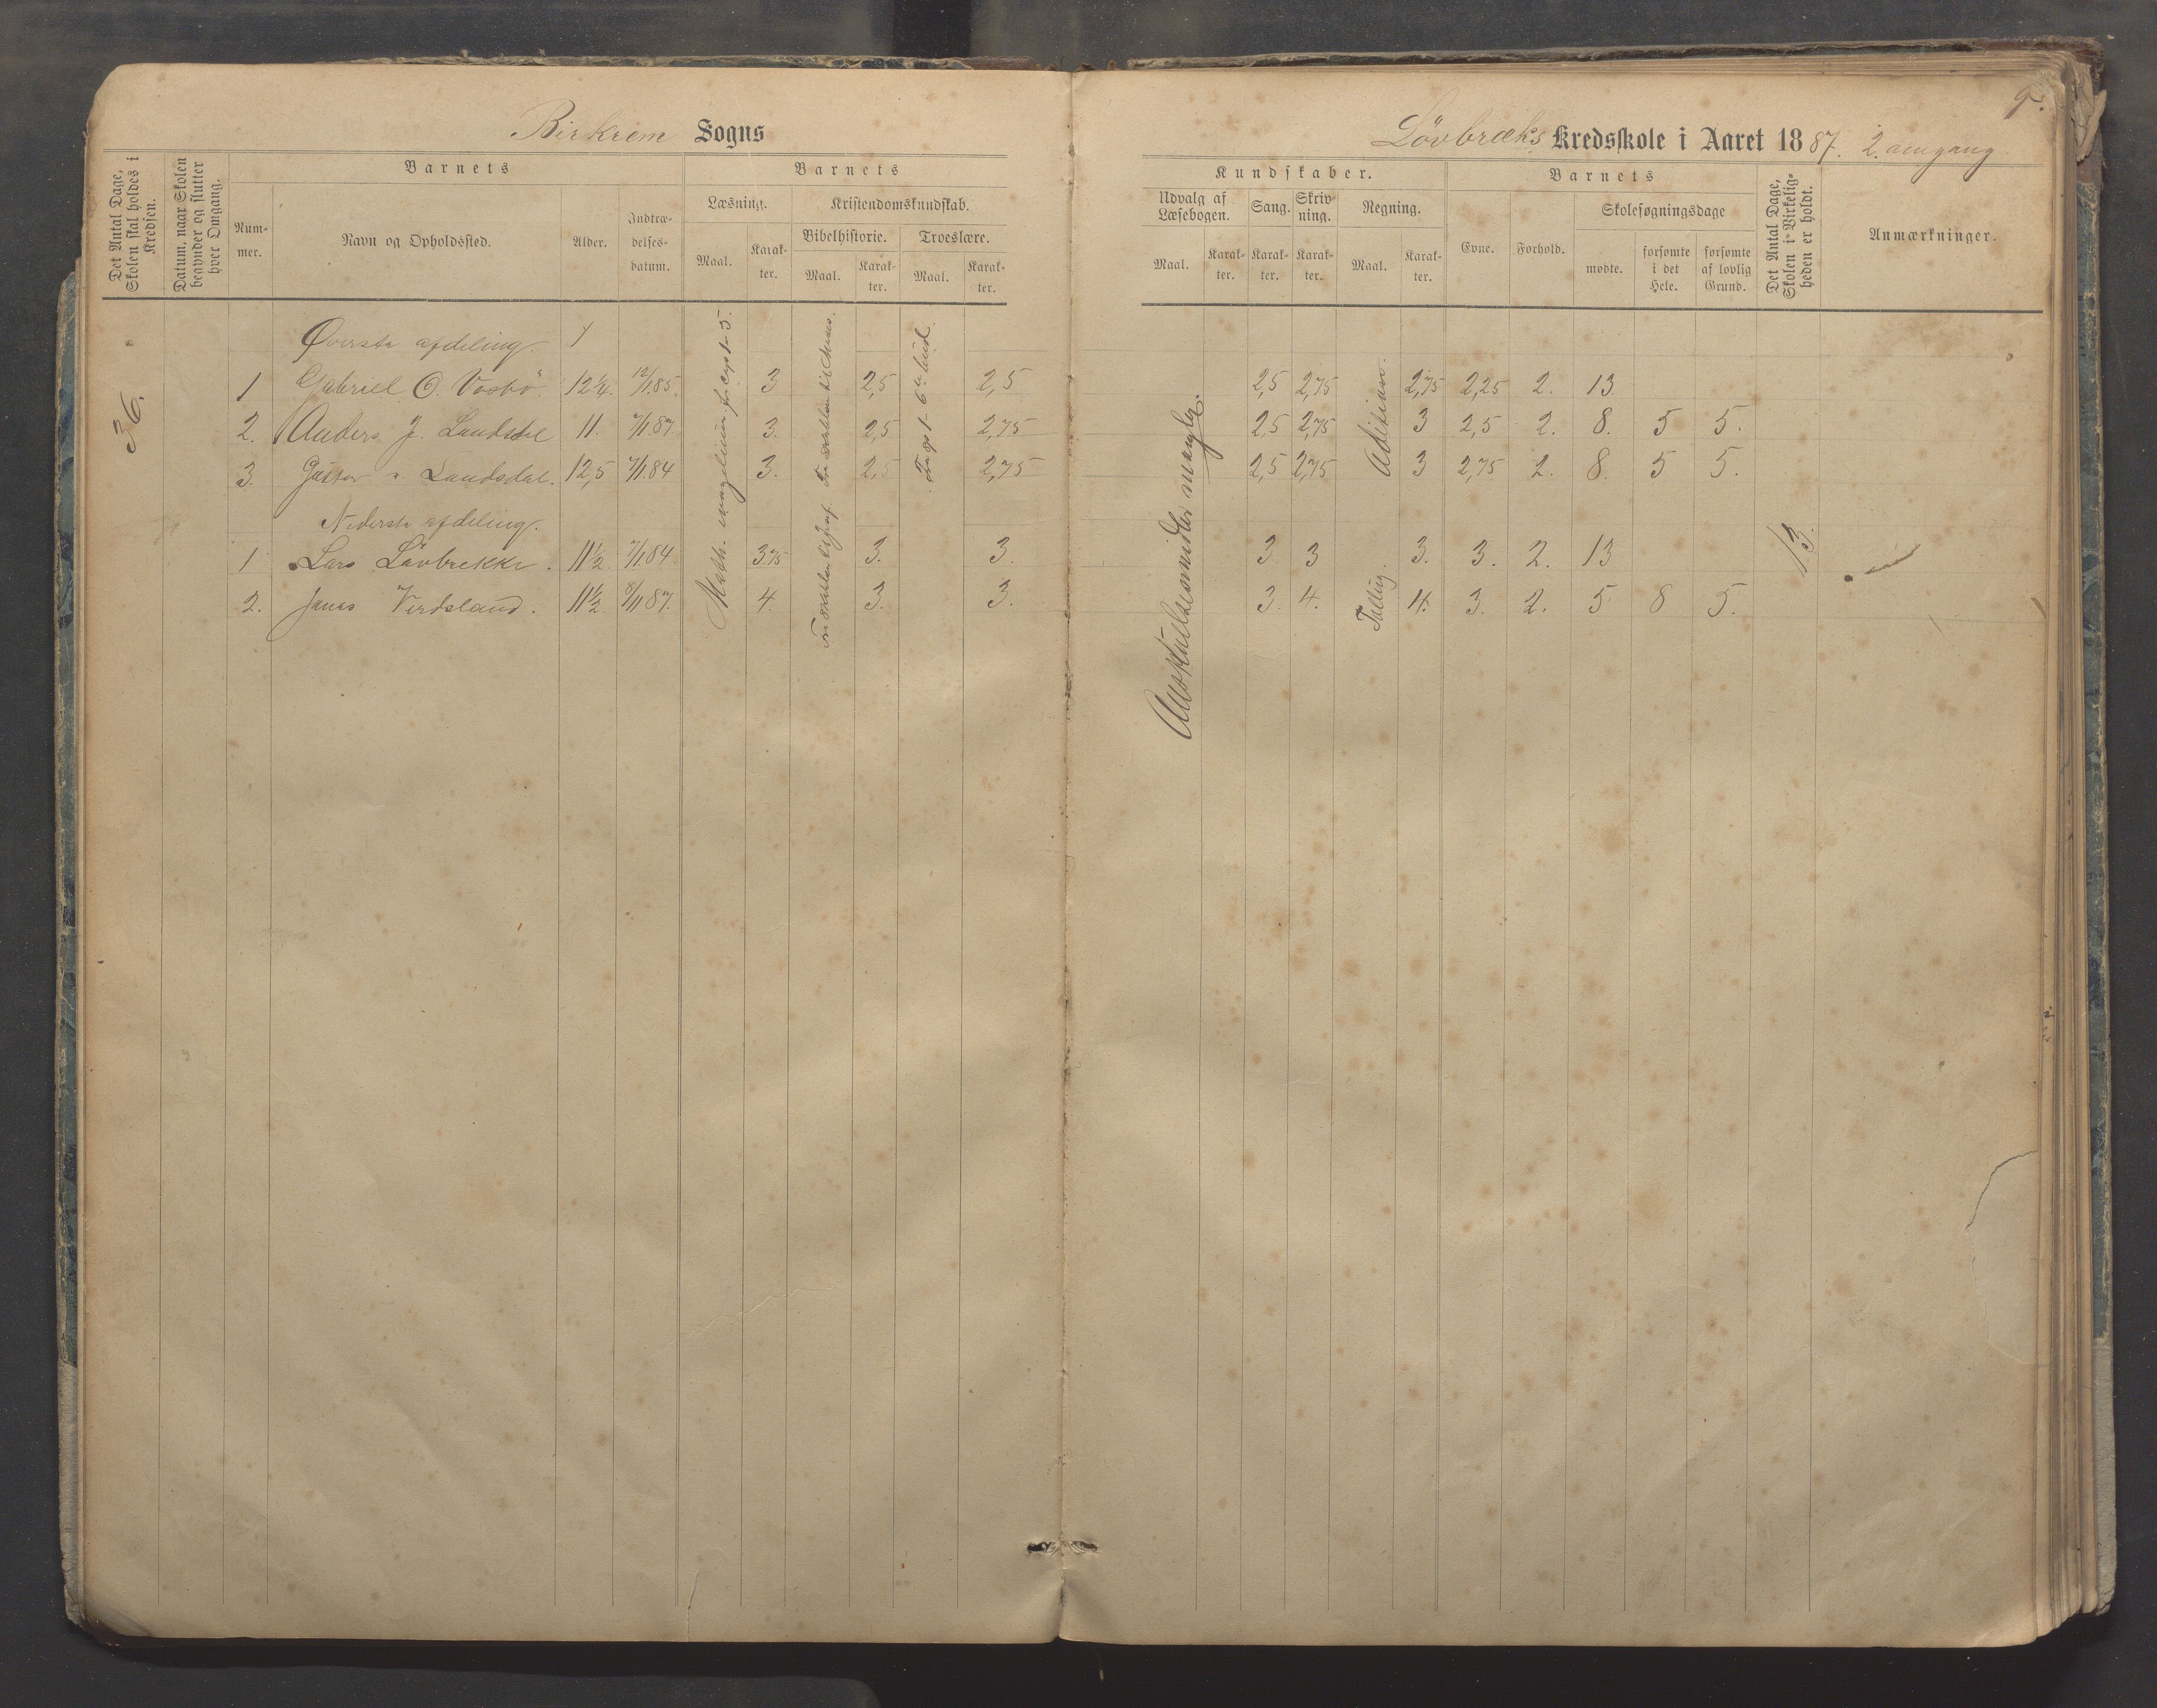 9.
Birkrem Sogns
Lövbræks Kredsskole i Aaret 1887. 2. omgang
Det Antal Dage, Skolen skal holdes i Kredsen.
Datum, naar Skolen begynder og slutter hver Omgang.
Barnets
Num-
mer.
Navn og Opholdssted.
Alder.
Indtræ-
delses-
datum.
Barnets
Læsning.
Maal.
Karak-
ter.
Kristendomskundskab.
Bibelhistorie.
Maal.
Karak-
ter.
Troeslære.
Maal.
Karak-
ter.
Kundskaber.
Udvalg af
Læsebogen.
Maal.
Karak-
ter.
Sang.
Karak-
ter.
Skriv-
ning.
Karak-
ter.
Regning.
Maal.
Karak-
ter.
Barnets
Evne.
Forhold.
Skolesøgningsdage
mødte.
forsømte
i det
Hele.
forsømte
af lovlig
Grund.
Det Antal Dage, Skolen i Virkelig-
heden er holdt.
Anmærkninger.
36.
Øverste afdeling.
1 Gabriel O. Vasbö. 12¼. 12/1.85. 3 2,5 2,5 2,5 2,75 2,75 2,25 2. 13.
2. Anders J. Landsdal 11. 7/1.87. 3. 2,5 2,75 2,5 2,75 3 2,5 2. 8. 5 5.
3. Gustav Landsdal. 12,5 7/1.84 3. 2,5 2,75 2,5 2,75 3 2,75 2. 8. 5 5.
Nederste afdeling.
1 Lars Lövbrekke. 11½. 7/1.84. 3.75 3. 3. 3 3 3. 3. 2. 13
2. Jonas Virdsland. 11½. 8/11 87. 4. 3. 3. 3. 4. 4. 3. 2. 5 8 5.
Adition.
Tælling.
Anskuelsesmidler mangler.
13.